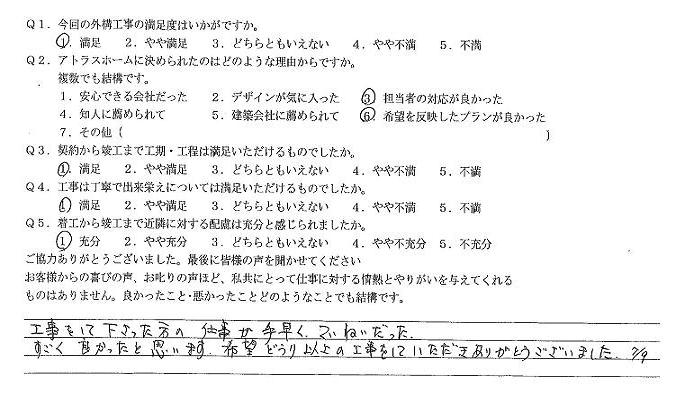 Q1．今回の外構工事の満足度はいかがですか。
①．満足　2．やや満足　3．どちらともいえない　4．やや不満　5．不満
Q2．アトラスホームに決められたのはどのような理由からですか。
複数でも結構です。
1．安心できる会社だった　2．デザインが気に入った　③　担当者の対応が良かった
4．知人に薦められて　5．建築会社に薦められて　⑥．希望を反映したプランが良かった
7．その他（　　　）
Q3．契約から竣工まで工期・工程は満足いただけるものでしたか。
①．満足　2．やや満足　3．どちらともいえない　4．やや不満　5．不満
Q4．工事は丁寧で出来栄えについては満足いただけるものでしたか。
①　満足　2．やや満足　3．どちらともいえない　4．やや不満　5．不満
Q5．着工から竣工まで近隣に対する配慮は充分と感じられましたか。
①　充分　2．やや充分　3．どちらともいえない　4．やや不充分　5．不充分
ご協力ありがとうございました。最後に皆様の声を聞かせてください
お客様からの喜びの声、お叱りの声ほど、私共にとって仕事に対する情熱とやりがいを与えてくれる
ものはありません。良かったこと・悪かったことどのようなことでも結構です。
工事をして下さった方の　仕事が　手早く、ていねいだった。
すごく　良かったと　思います。希望どうり以上の工事をしていただきありがとうございました。